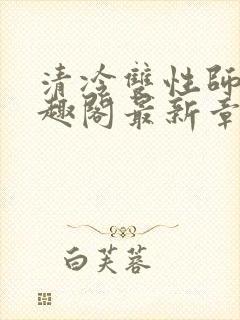 清冷雙性師
趣閣最新章
白芙蓉